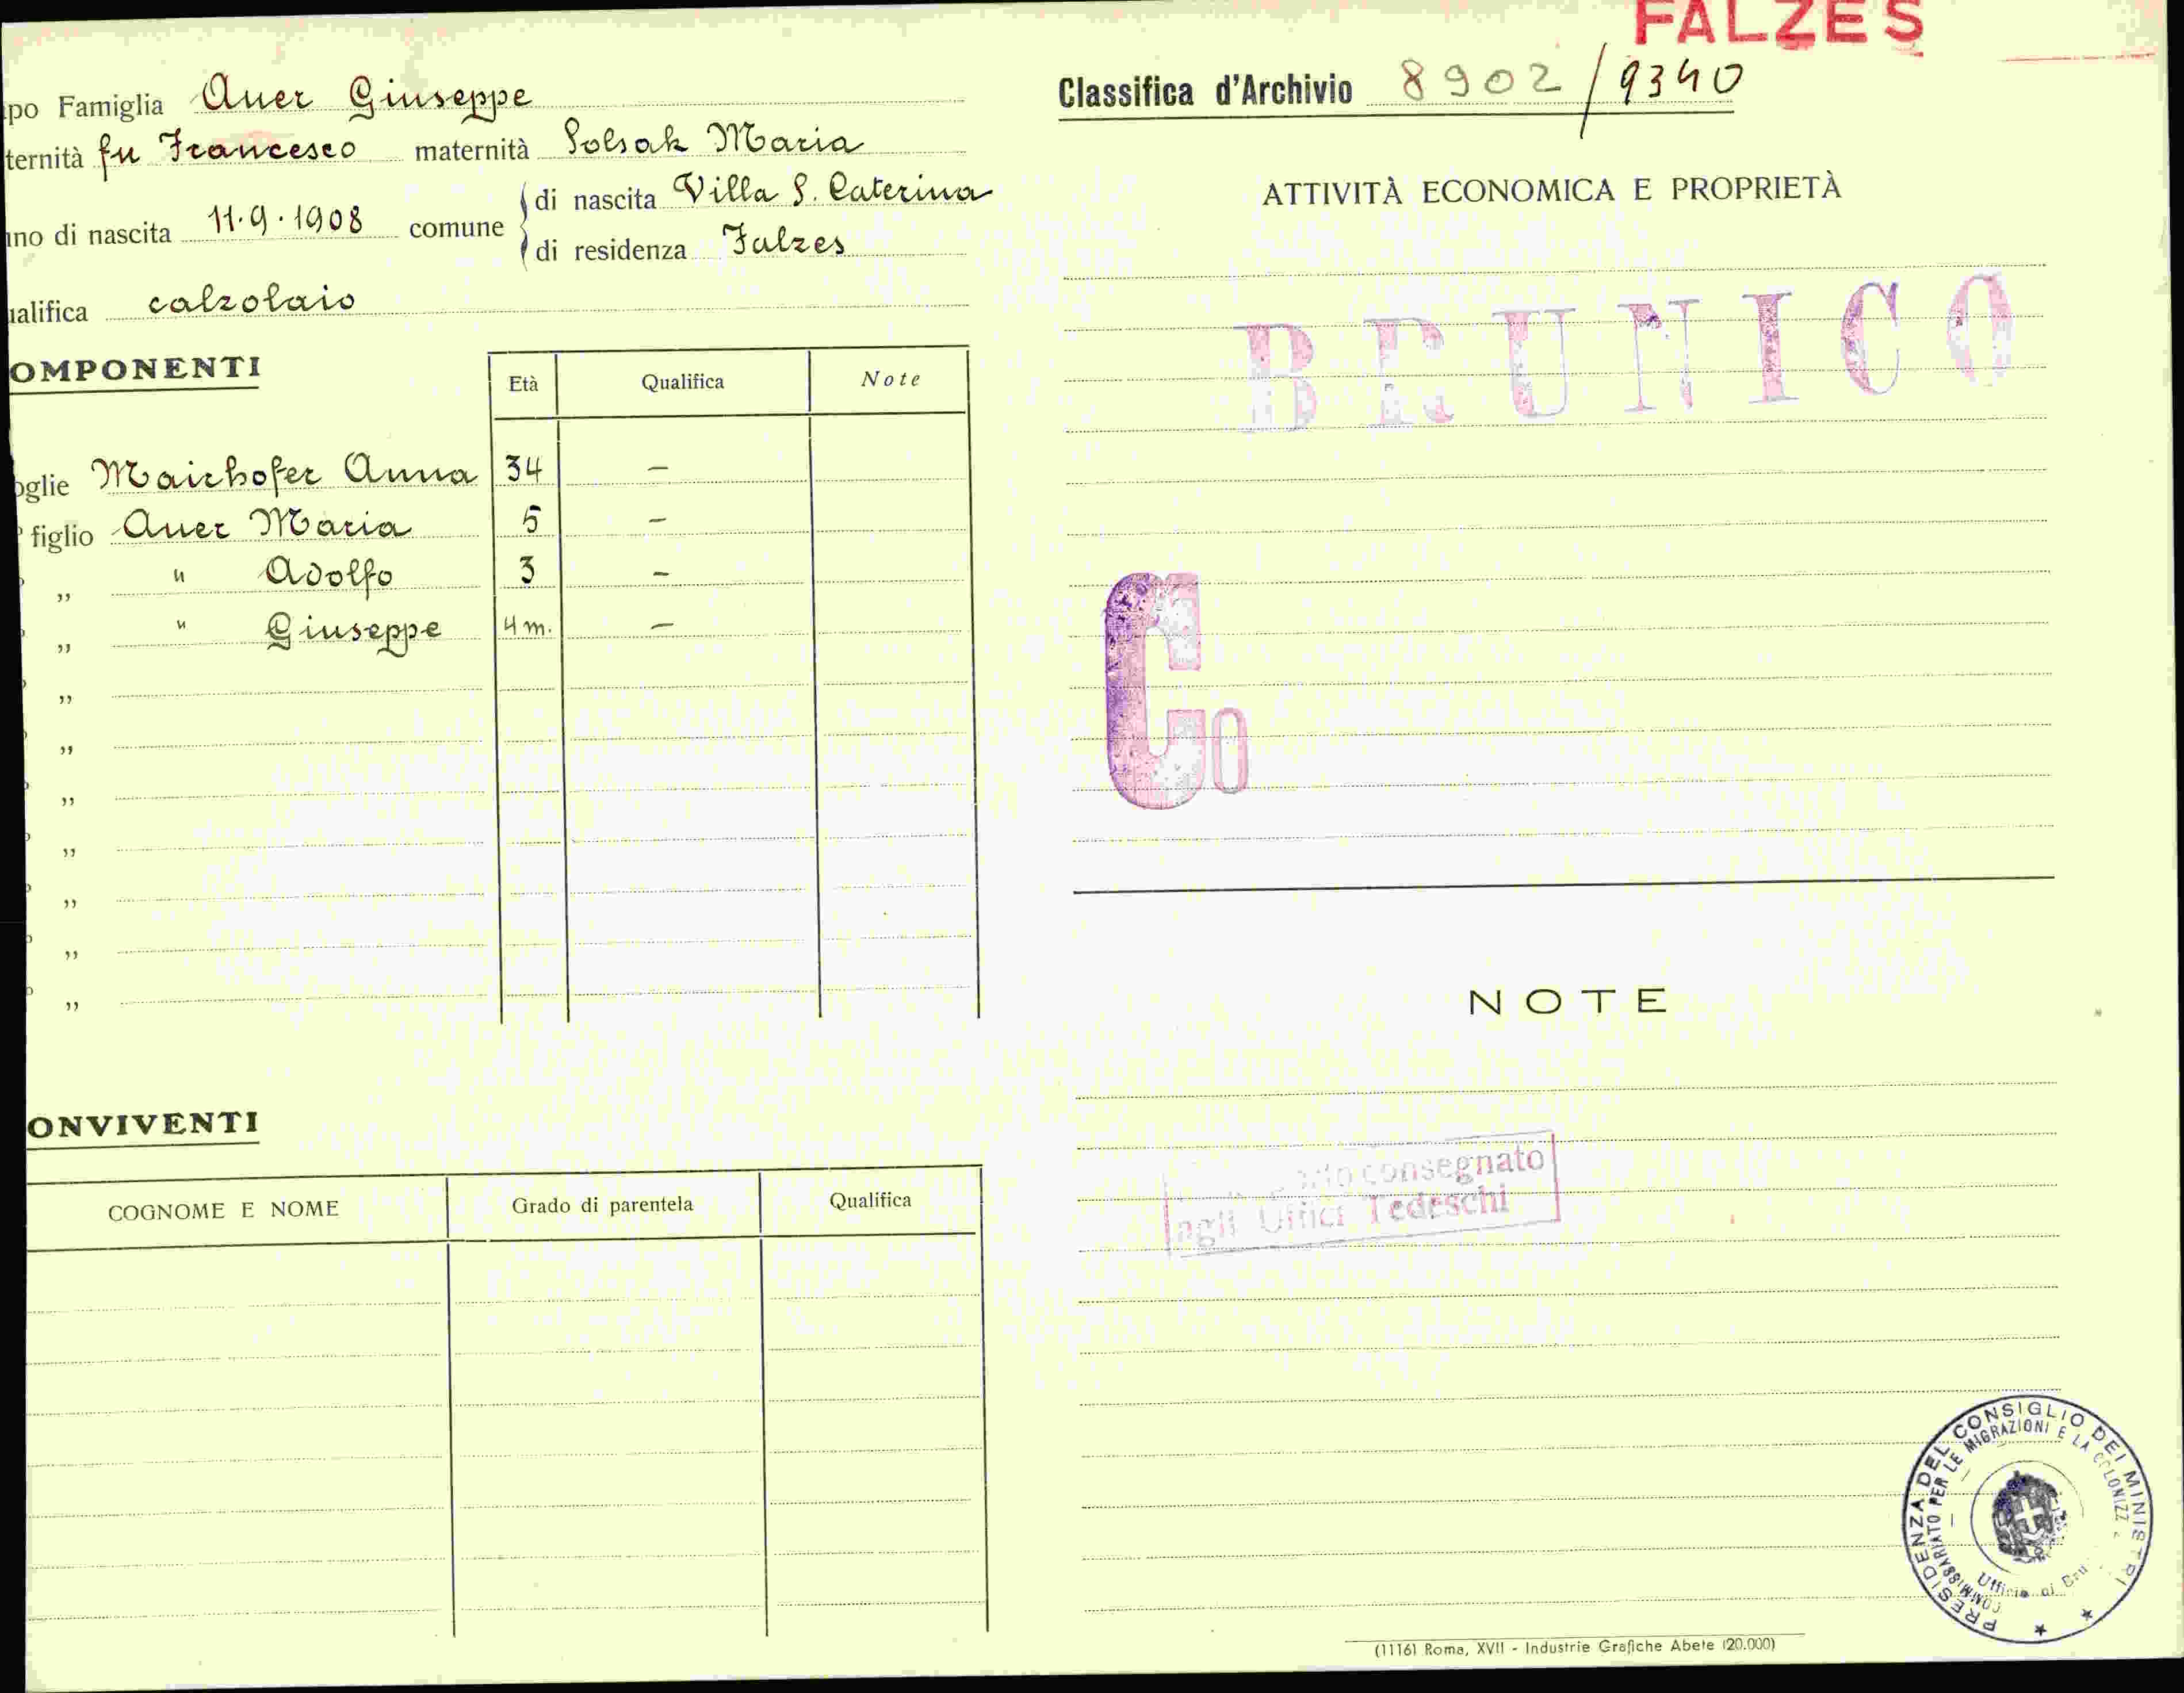 FALZES
po Famiglia Auer Giuseppe
Classifica d'Archivio 8902/9340
ternità fu Francesco maternità Solsak Maria
no di nascita 11.9.1908 comune di nascita Villa S. Caterina
di residenza Falzes
alifica calzolaio
OMPONENTI
Età Qualifica Note
oglie Mairhofer Anna 34 —
figlio Auer Maria 5 —
„ " Adolfo 3 —
„ " Giuseppe 4 m. —
„
„
„
„
„
„
„
ONVIVENTI
COGNOME E NOME Grado di parentela Qualifica
ATTIVITÀ ECONOMICA E PROPRIETÀ
BRUNICO
Co
NOTE
consegnato
agli Uffici Tedeschi
PRESIDENZA DEL CONSIGLIO DEI MINISTRI
COMMISSARIATO PER LE MIGRAZIONI E LA COLONIZZ
Ufficio di
(1116) Roma, XVII - Industrie Grafiche Abete (20.000)